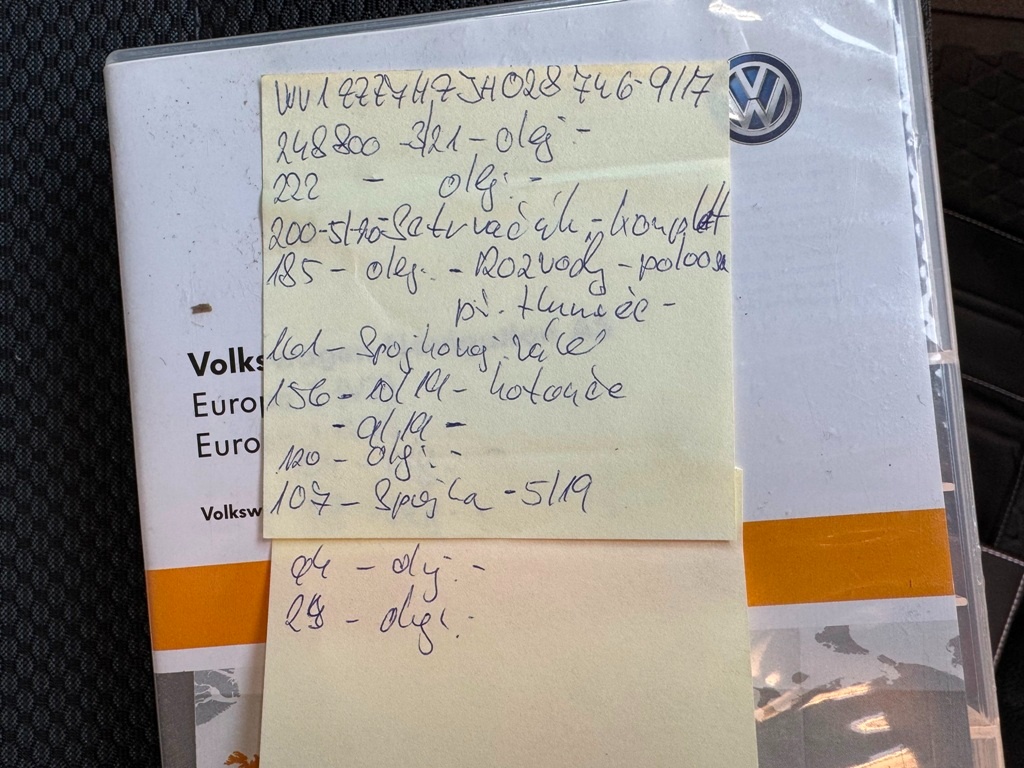 WV1ZZZ7HZJH028746-9/17
248800 - 3/21 - olej -
222 - olej -
200-5/20-Setrvačník - komplet
185 - olej - Rozvody - poloosa
př. tlumiče -
161 - Spojkový válec
156 - 10/19 - kotouče
- 9/19 -
120 - olej -
107 - Spojka - 5/19
94 - olej -
29 - olej
Volks
Europ
Euro
Volksw